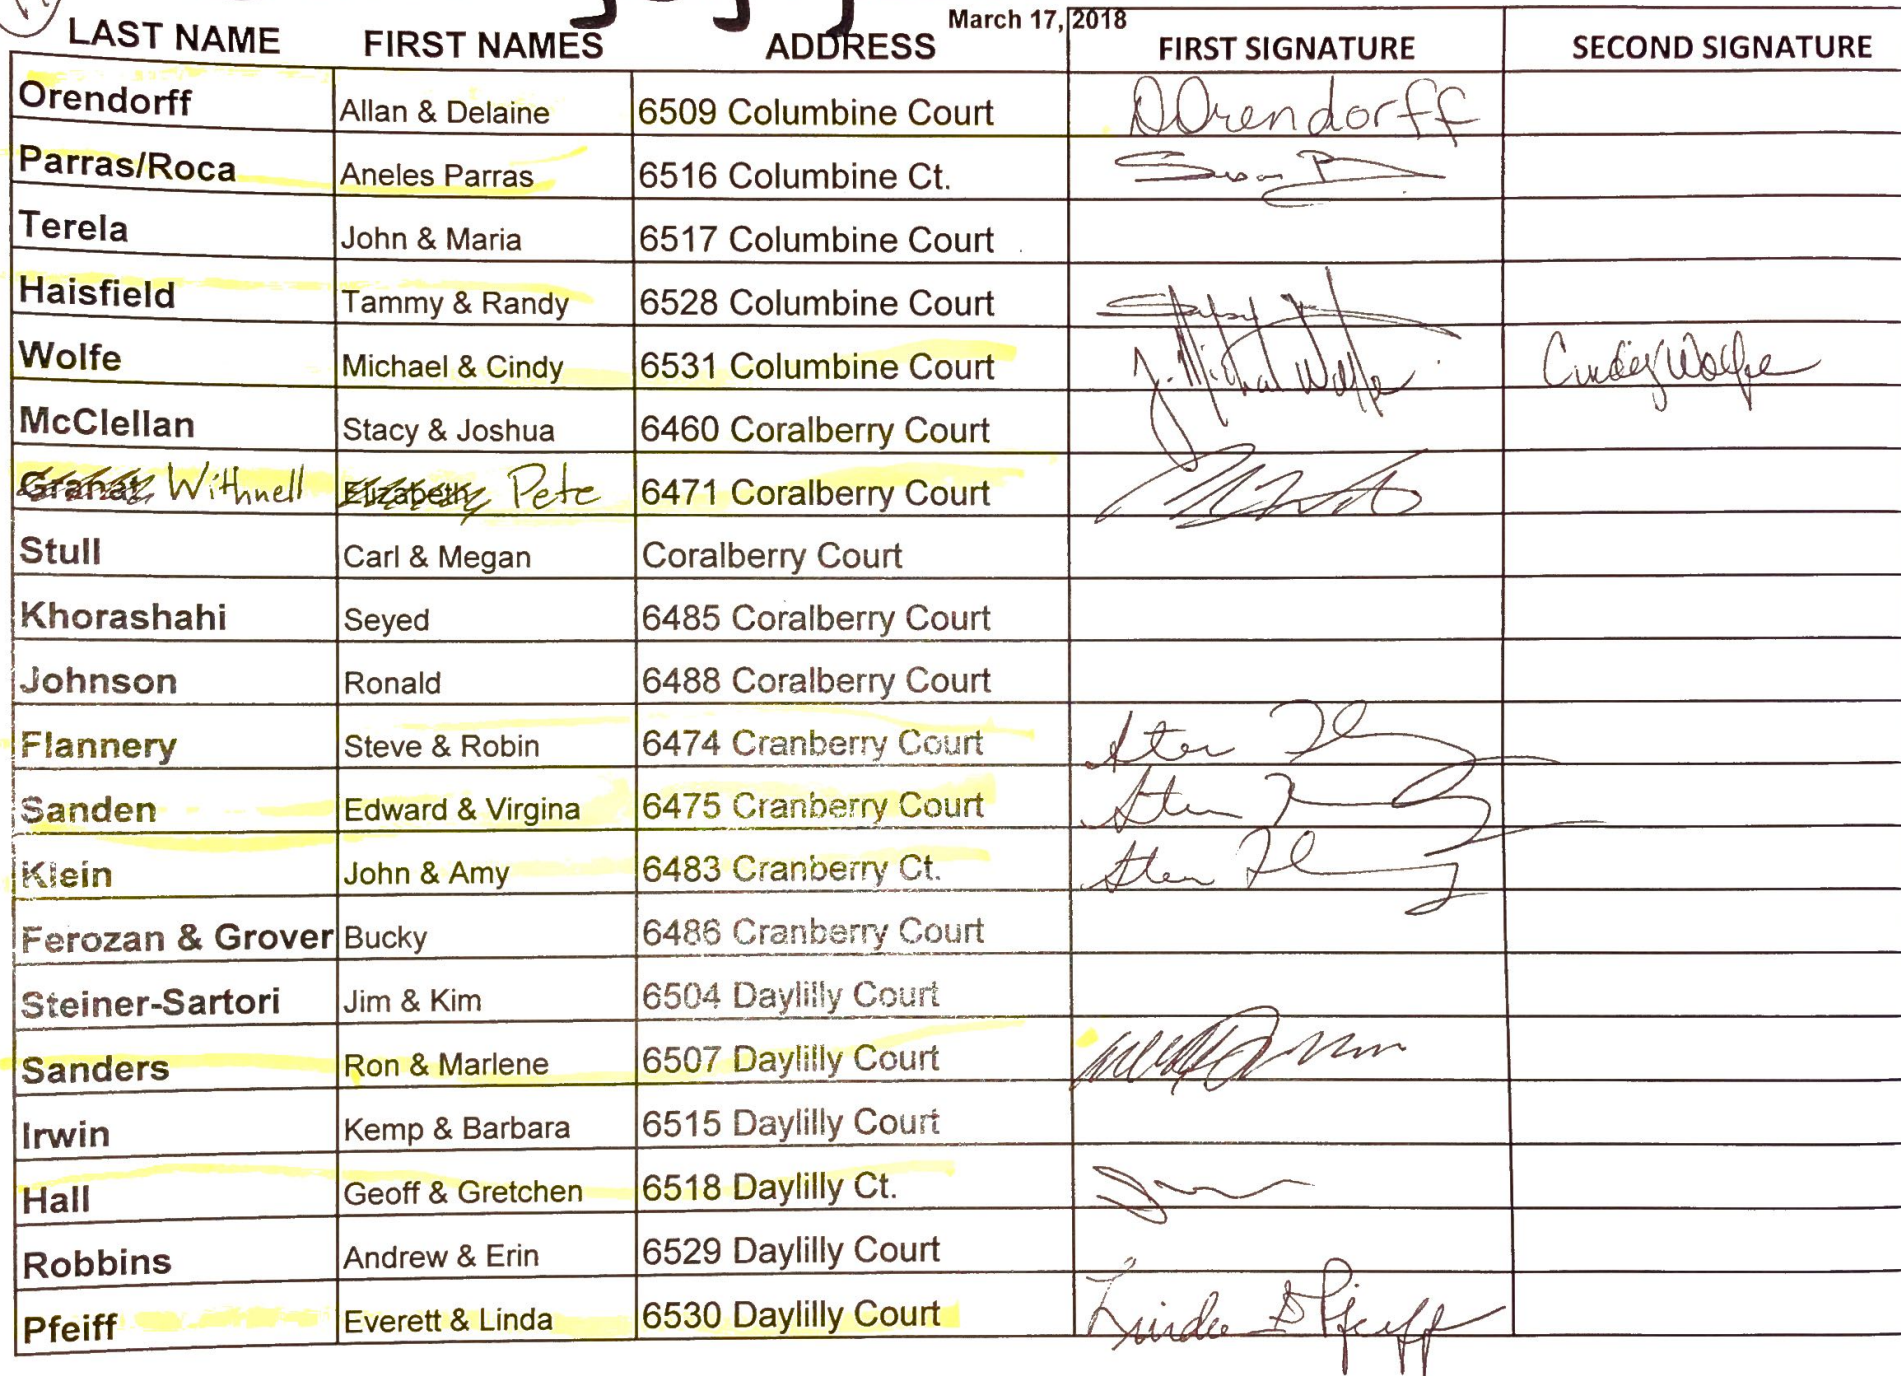 March 17, 2018
LAST NAME FIRST NAMES ADDRESS FIRST SIGNATURE SECOND SIGNATURE
Orendorff Allan & Delaine 6509 Columbine Court DOrendorff
Parras/Roca Aneles Parras 6516 Columbine Ct. Susan
Terela John & Maria 6517 Columbine Court
Haisfield Tammy & Randy 6528 Columbine Court
Wolfe Michael & Cindy 6531 Columbine Court J. Michael Wolfe Cindy Wolfe
McClellan Stacy & Joshua 6460 Coralberry Court
Withnell Elizabeth Pete 6471 Coralberry Court
Stull Carl & Megan Coralberry Court
Khorashahi Seyed 6485 Coralberry Court
Johnson Ronald 6488 Coralberry Court
Flannery Steve & Robin 6474 Cranberry Court Steve Flannery
Sanden Edward & Virgina 6475 Cranberry Court Steve Flannery
Klein John & Amy 6483 Cranberry Ct. Steve Flannery
Ferozan & Grover Bucky 6486 Cranberry Court
Steiner-Sartori Jim & Kim 6504 Daylilly Court
Sanders Ron & Marlene 6507 Daylilly Court
Irwin Kemp & Barbara 6515 Daylilly Court
Hall Geoff & Gretchen 6518 Daylilly Ct.
Robbins Andrew & Erin 6529 Daylilly Court
Pfeiff Everett & Linda 6530 Daylilly Court Linda D Pfeiff